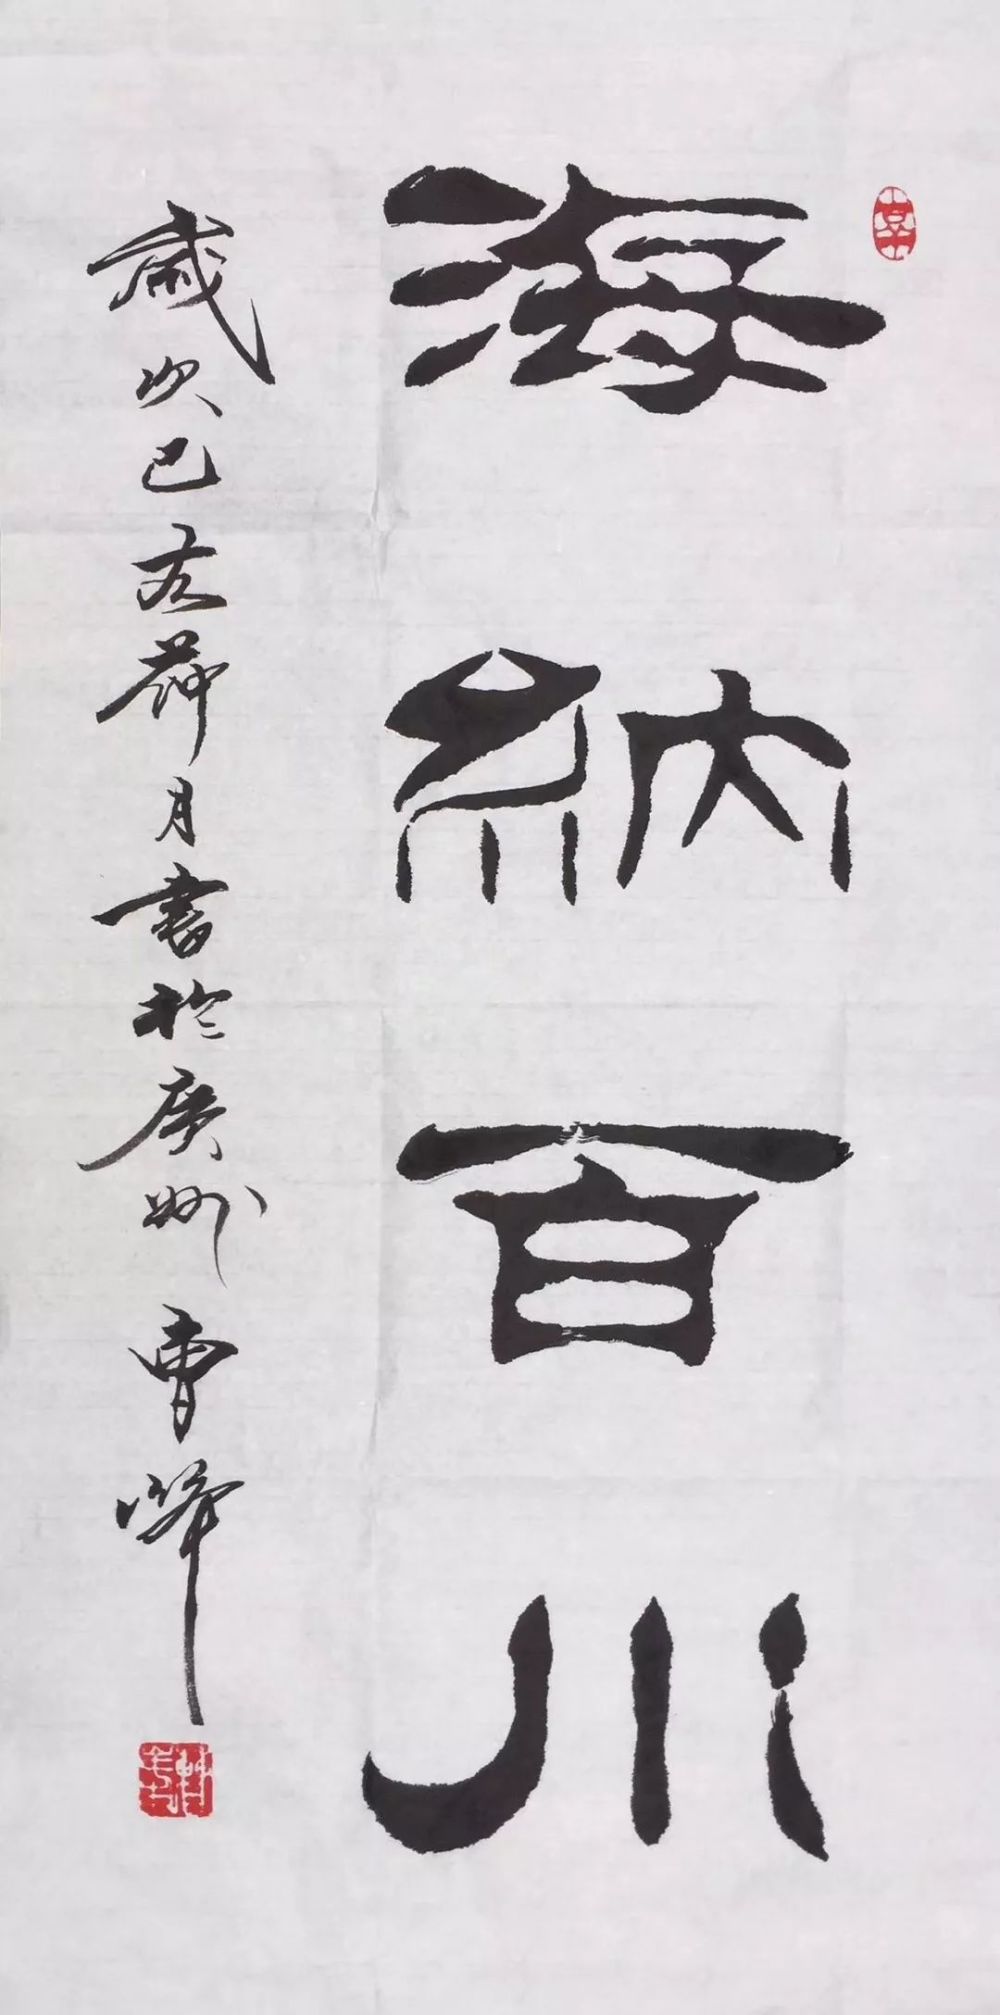 海納百川
歲次己亥荷月書於廣州曹峰